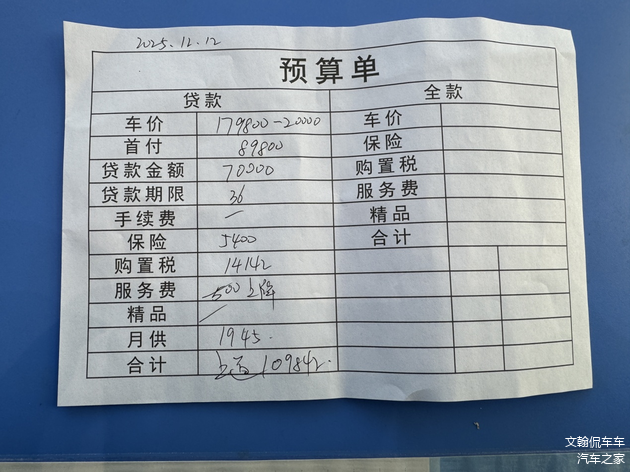 2025.12.12
预算单
贷款 全款
车价 179800-20000 车价
首付 89800 保险
贷款金额 70000 购置税
贷款期限 36 服务费
手续费 — 精品
保险 5400 合计
购置税 14142
服务费 500上牌
精品
月供 1945.
合计 109842.
文翰侃车车
汽车之家